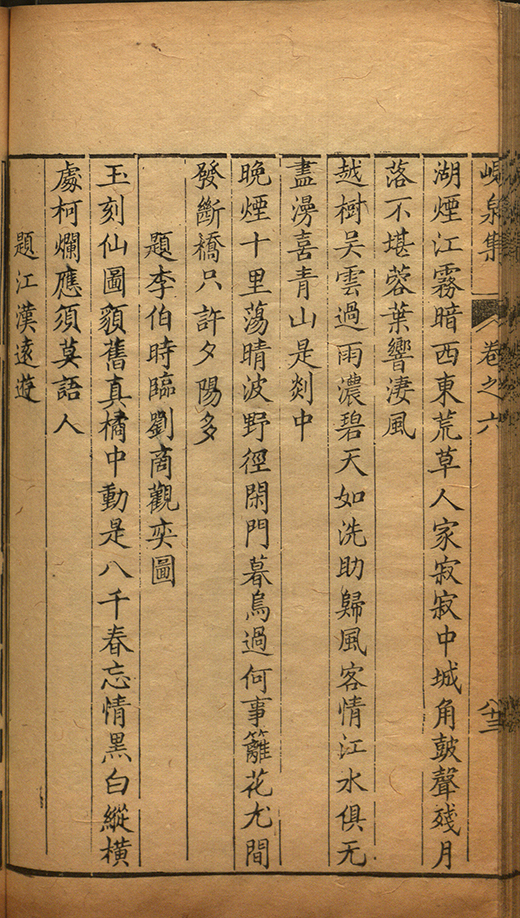 峴泉集
卷之六
八十三
湖煙江霧暗西東荒草人家寂寂中城角鼓聲殘月
落不堪蓉葉響淒風
越樹吳雲過雨濃碧天如洗助歸風客情江水俱无
盡漫喜青山是剡中
晚煙十里蕩晴波野徑閑門暮烏過何事籬花尤間
發斷橋只許夕陽多
題李伯時臨劉商觀奕圖
玉刻仙圖額舊真橘中動是八千春忘情黑白縱橫
處柯爛應須莫語人
題江漢遠遊